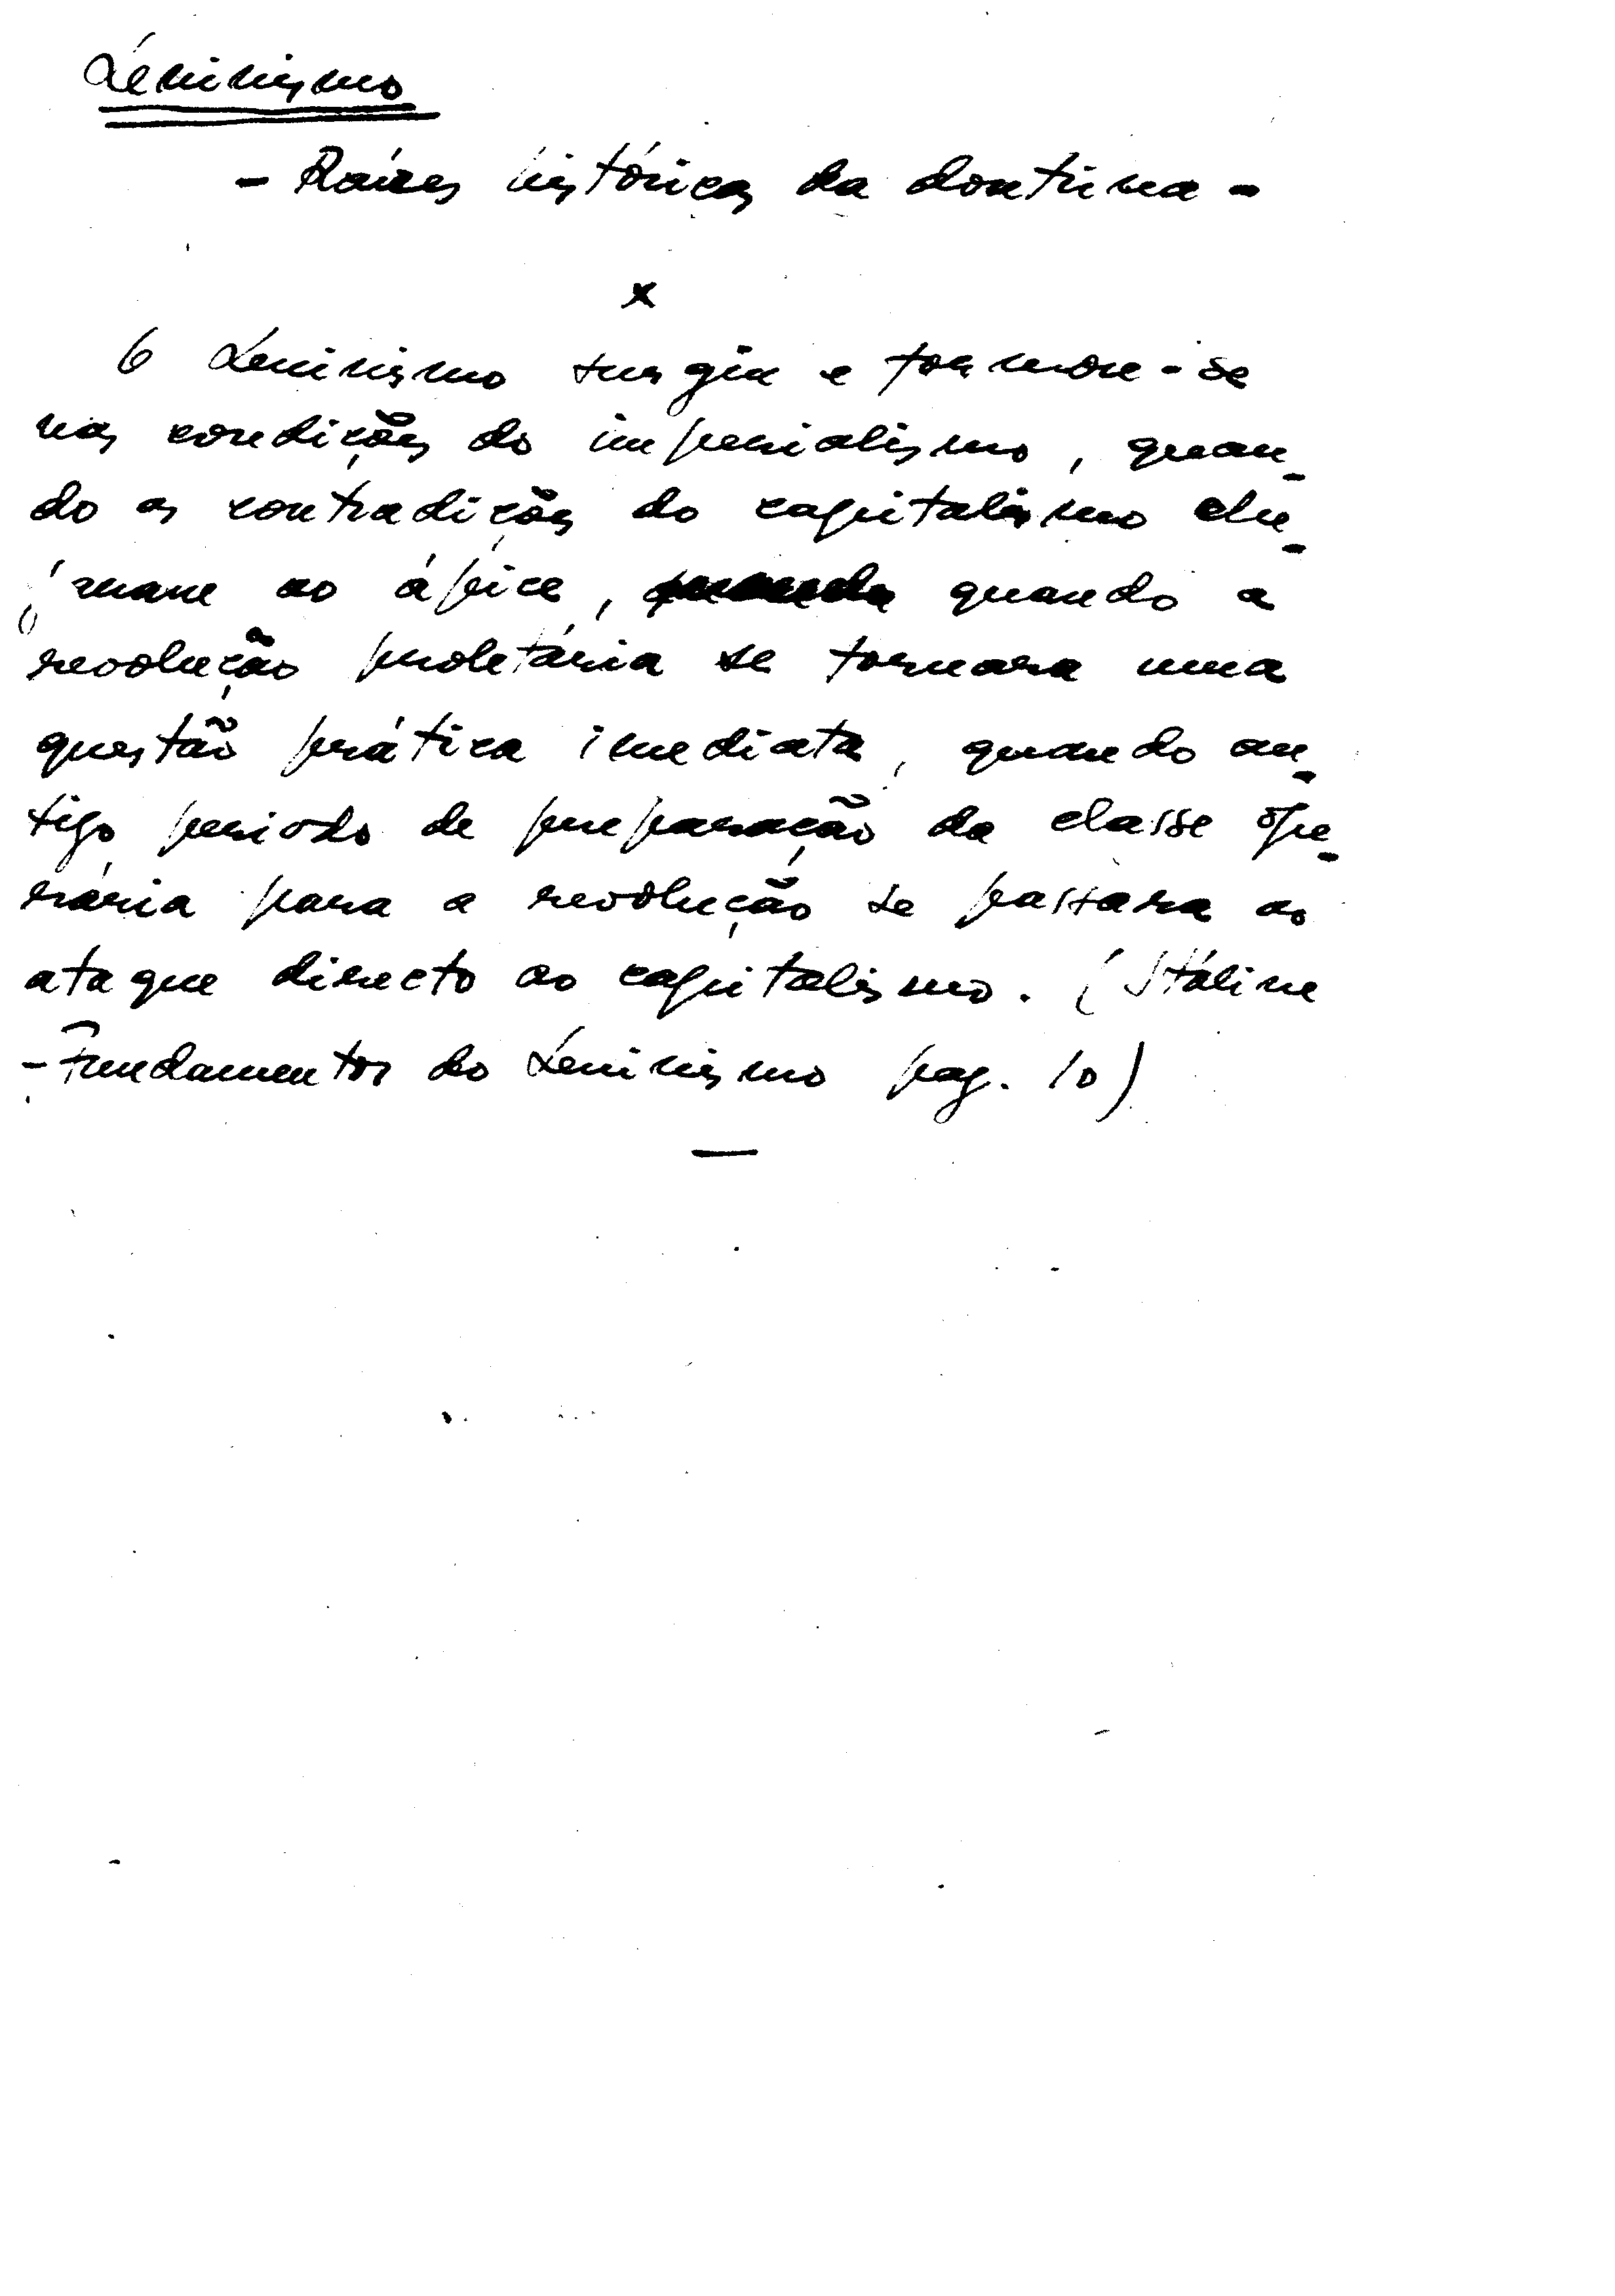 Leninismo
- Raízes históricas da doutrina -
x
O Leninismo surgiu e formou-se
nas condições do imperialismo, quan-
do as contradições do capitalismo che-
gavam ao ápice, quando a
revolução proletária se tornara uma
questão prática imediata, quando an-
tigo periodo de preparação da classe ope-
rária para a revolução se passara ao
ataque directo ao capitalismo. (Stáline
- Fundamentos do Leninismo pag. 10)